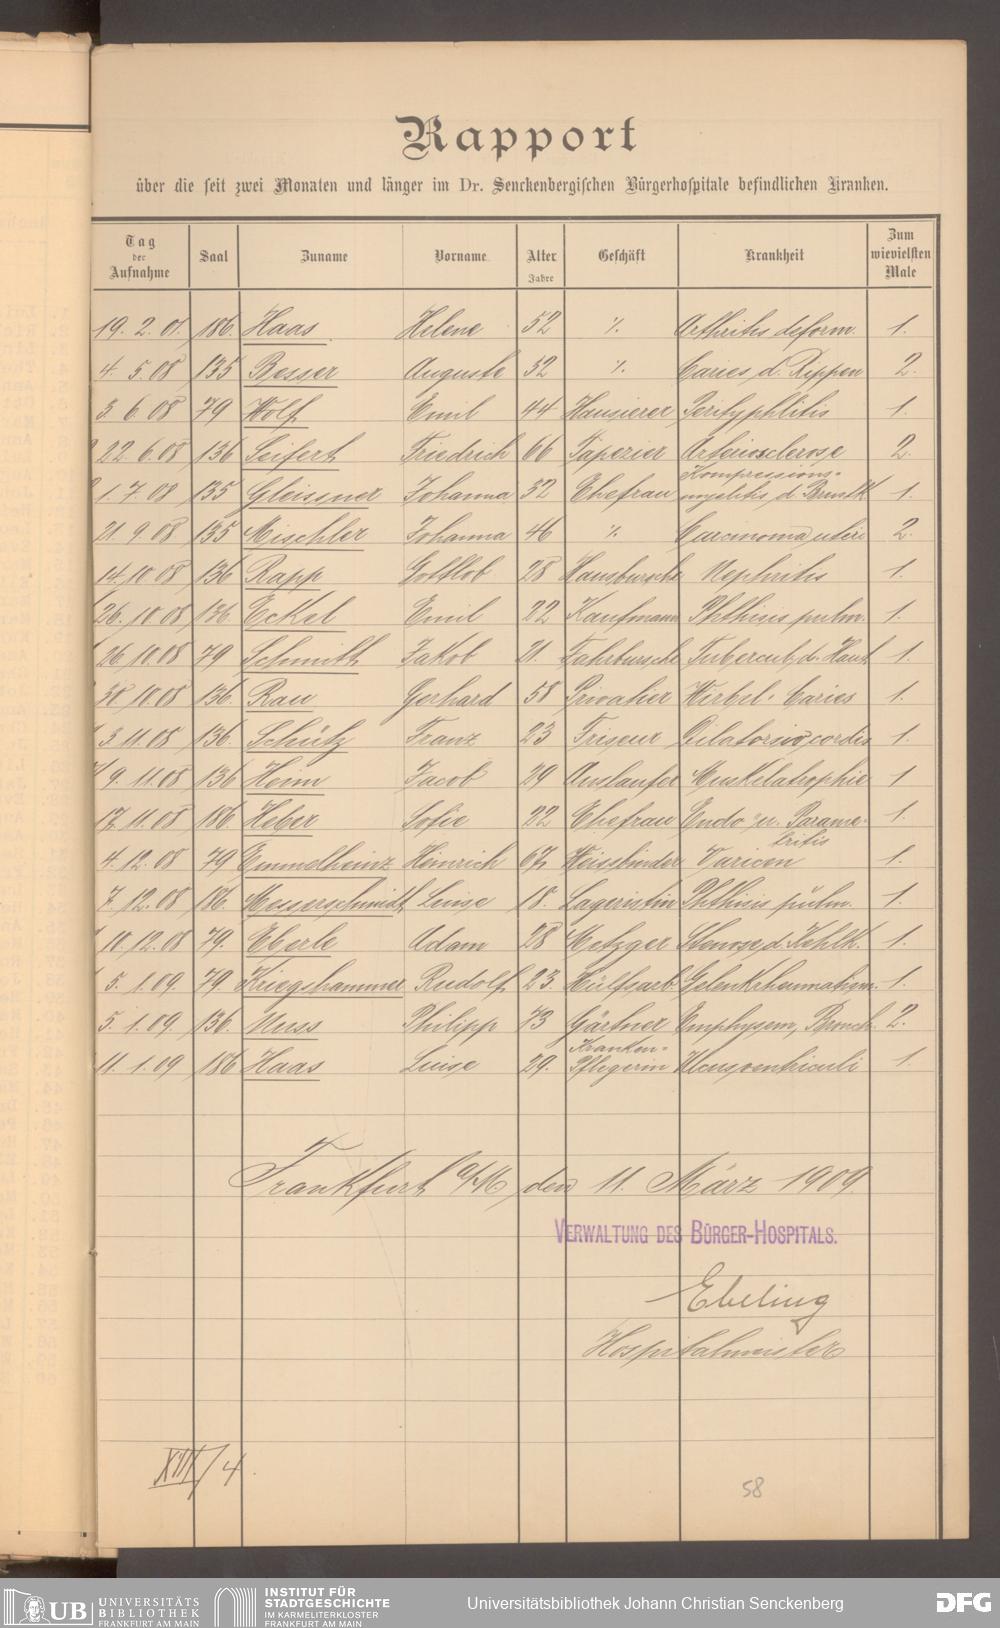 Rapport
über die seit zwei Monaten und länger im Dr. Senckenbergischen Bürgerhospitale befindlichen Kranken.
Tag der Aufnahme Saal Zuname Vorname Alter Jahre Geschäft Krankheit Zum wievielsten Male
19. 2. 07. 186. Haas Helene 52 ./. Arthritis deform. 1.
4. 5. 08 135 Besser Auguste 32 ./. Caries d. Rippen 2.
3. 6. 08 79 Wolf Emil 44 Hausierer Perityphlitis 1.
22. 6. 08 136 Seifert Friedrich 66 Tapezier Arteriosclerose 2.
1. 7. 08 135 Gleissner Johanna 32 Ehefrau Kompressions-myelitis d. Brustk 1.
21. 9. 08 135 Mischler Johanna 46 ./. Carcinoma uteri 2.
14. 10 08 136 Rapp Gottlob 28 Hausbursche Nephritis 1.
26. 10 08 136. Eckel Emil 22 Kaufmann Phthisis pulm. 1.
26. 10. 08 79 Schmith Jakob 21. Fahrbursche Tubercul. d. Haut 1.
30 10. 08 136. Rau Gerhard 58 Privatier Wirbel-Caries 1.
3. 11. 08 136. Schütz Franz 23 Friseur Dilatorsio cordis 1.
9. 11. 08 136 Heim Jacob 29 Auslaufer Muskelatrophie 1
17. 11. 08 186. Heber Sofie 22 Ehefrau Endo u. Parame-tritis 1.
4. 12. 08 79 Emmelheinz Heinrich 67 Weissbinder Varicen 1.
7. 12. 08 186. Meserschmidt Luise 18. Lageristin Phthisis pulm. 1.
10. 12. 08 79. Eberle Adam 28 Metzger Stenose d. Kehlk. 1.
5. 1. 09. 79. Krieghammer Rudolf 23. Hülfsarb Gelenkrheumatism. 1.
5. 1. 09. 136. Nuss Philipp 73 Gärtner Emphysem, Bronch. 2.
11. 1. 09 186 Haas Luise 29. Kranken-Pflegerin Ulcus ventriculi 1.
Frankfurt a/M, den 11. März 1909.
VERWALTUNG DES BÜRGER-HOSPITALS.
Ebeling
Hospitalmeister
XIII/4.
58
UB UNIVERSITÄTS BIBLIOTHEK FRANKFURT AM MAIN
INSTITUT FÜR STADTGESCHICHTE IM KARMELITERKLOSTER FRANKFURT AM MAIN
Universitätsbibliothek Johann Christian Senckenberg
DFG